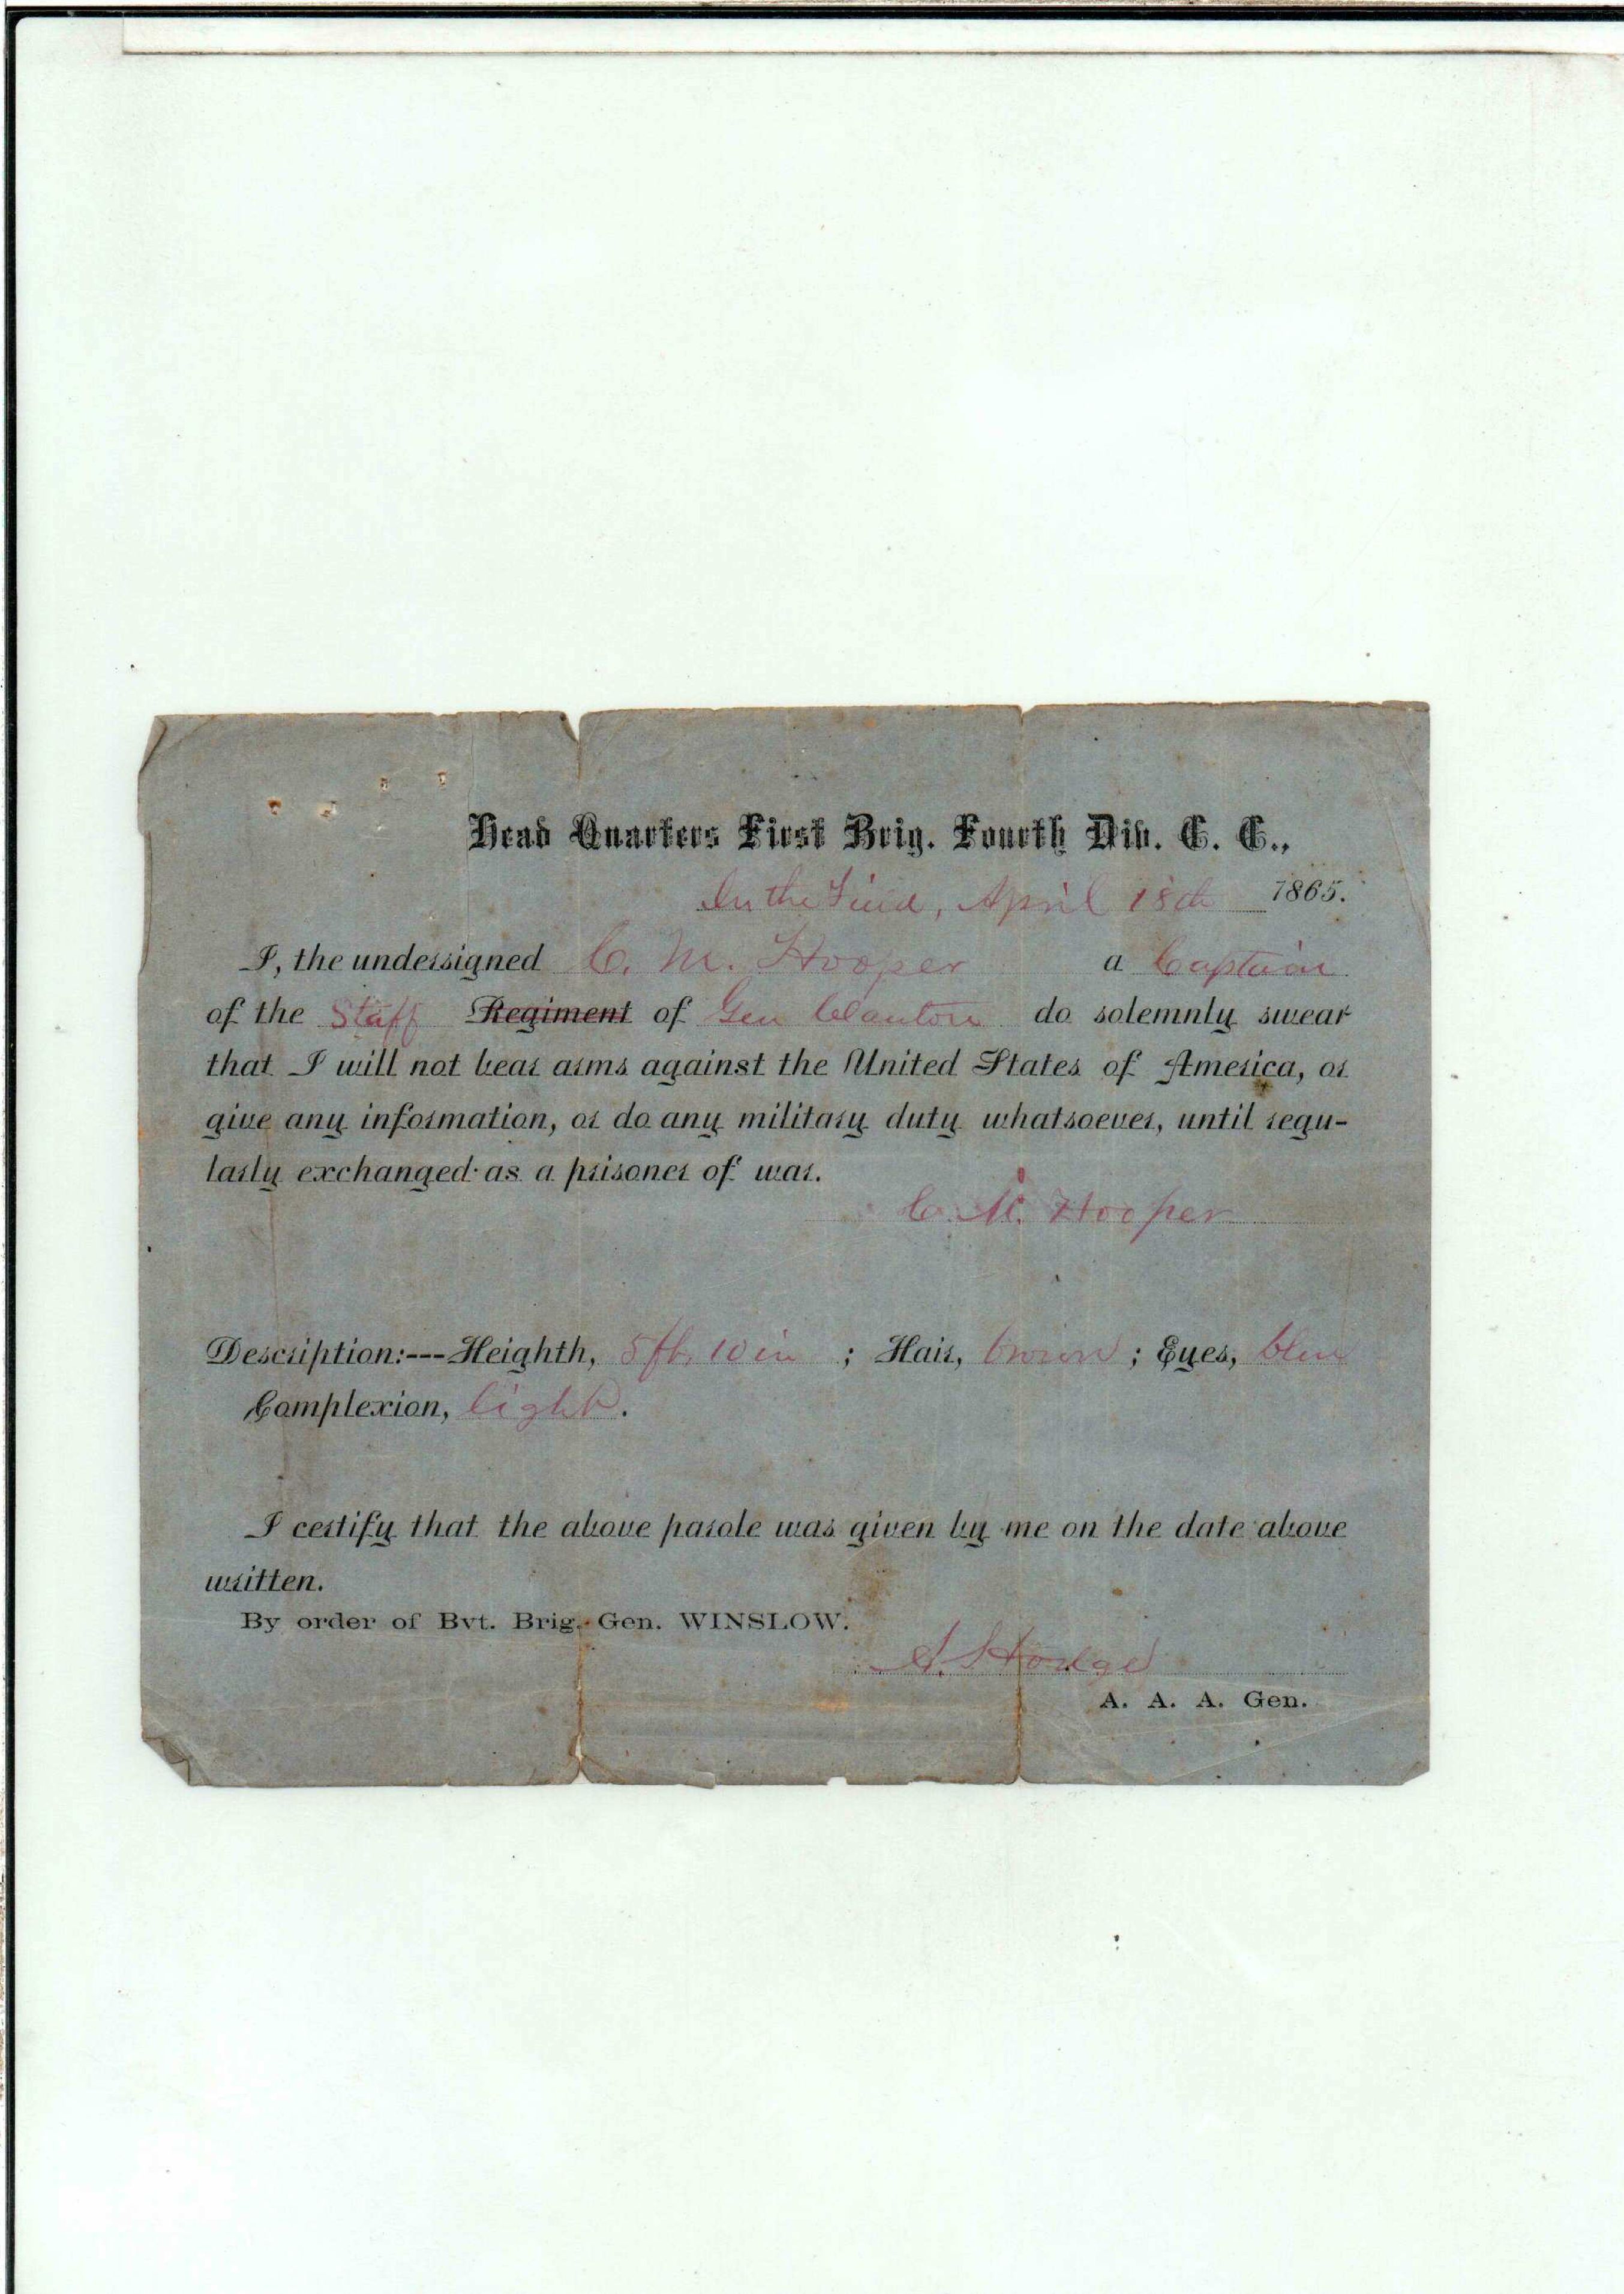 Head Quarters First Brig. Fourth Div. C. C.,
In the Field, April 18th 1865.
I, the undersigned C. M. Hooper a Captain
of the Staff Regiment of Gen Clanton do solemnly swear
that I will not bear arms against the United States of America, or
give any information, or do any military duty whatsoever, until regu-
larly exchanged as a prisoner of war.
C. M. Hooper
Description:---Heighth, 5 ft, 10 in ; Hair, brown ; Eyes, blue
Complexion, light.
I certify that the above parole was given by me on the date above
written.
By order of Bvt. Brig. Gen. WINSLOW.
A. Hodge
A. A. A. Gen.